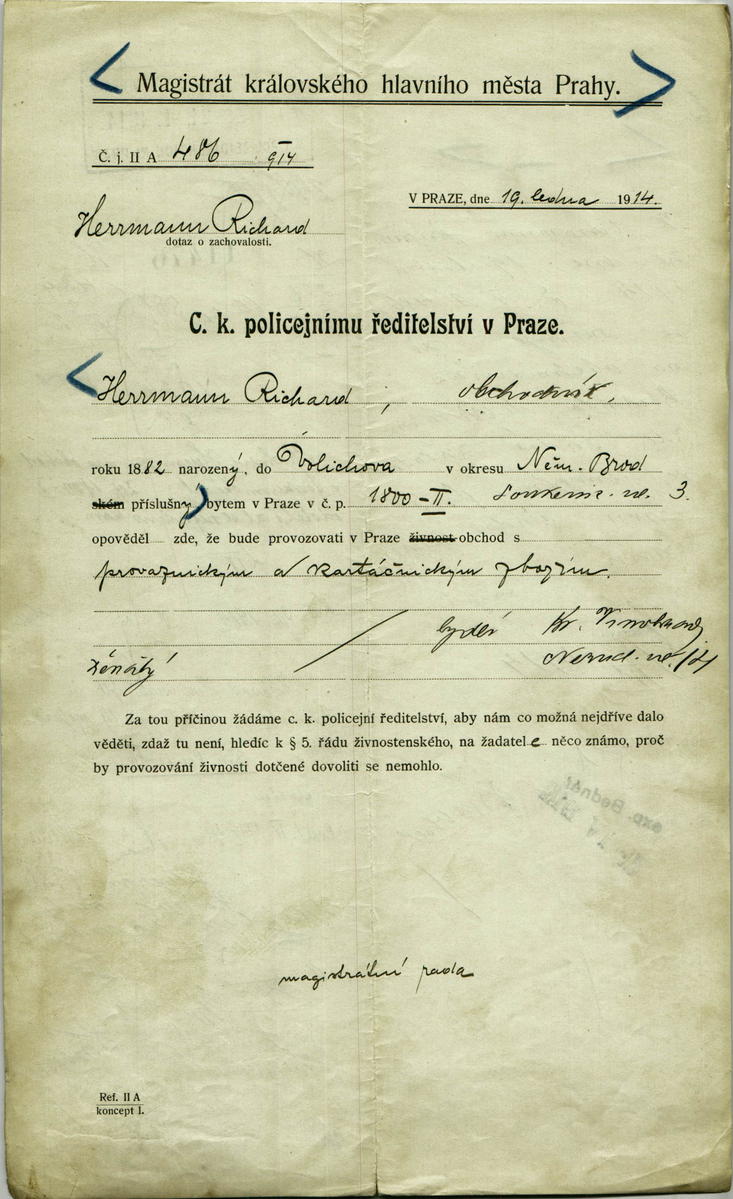 Magistrát královského hlavního města Prahy.
Č. j. II A 486 914
V PRAZE, dne 19. ledna 1914.
Herrmann Richard
dotaz o zachovalosti.
C. k. policejnímu ředitelství v Praze.
Herrmann Richard, obchodník,
roku 1882 narozený, do Volichova v okresu Něm. Brod
ském příslušný bytem v Praze v č. p. 1800-II. Soukenic. ul. 3.
opověděl zde, že bude provozovati v Praze živnost obchod s
provaznickým a kartáčnickým zbožím.
bydlí Kr. Vinohrady
ženatý Nerud. ul.
Za tou příčinou žádáme c. k. policejní ředitelství, aby nám co možná nejdříve dalo
věděti, zdaž tu není, hledíc k § 5. řádu živnostenského, na žadatele něco známo, proč
by provozování živnosti dotčené dovoliti se nemohlo.
exp. Bednář
magistrátní rada
Ref. II A
koncept I.